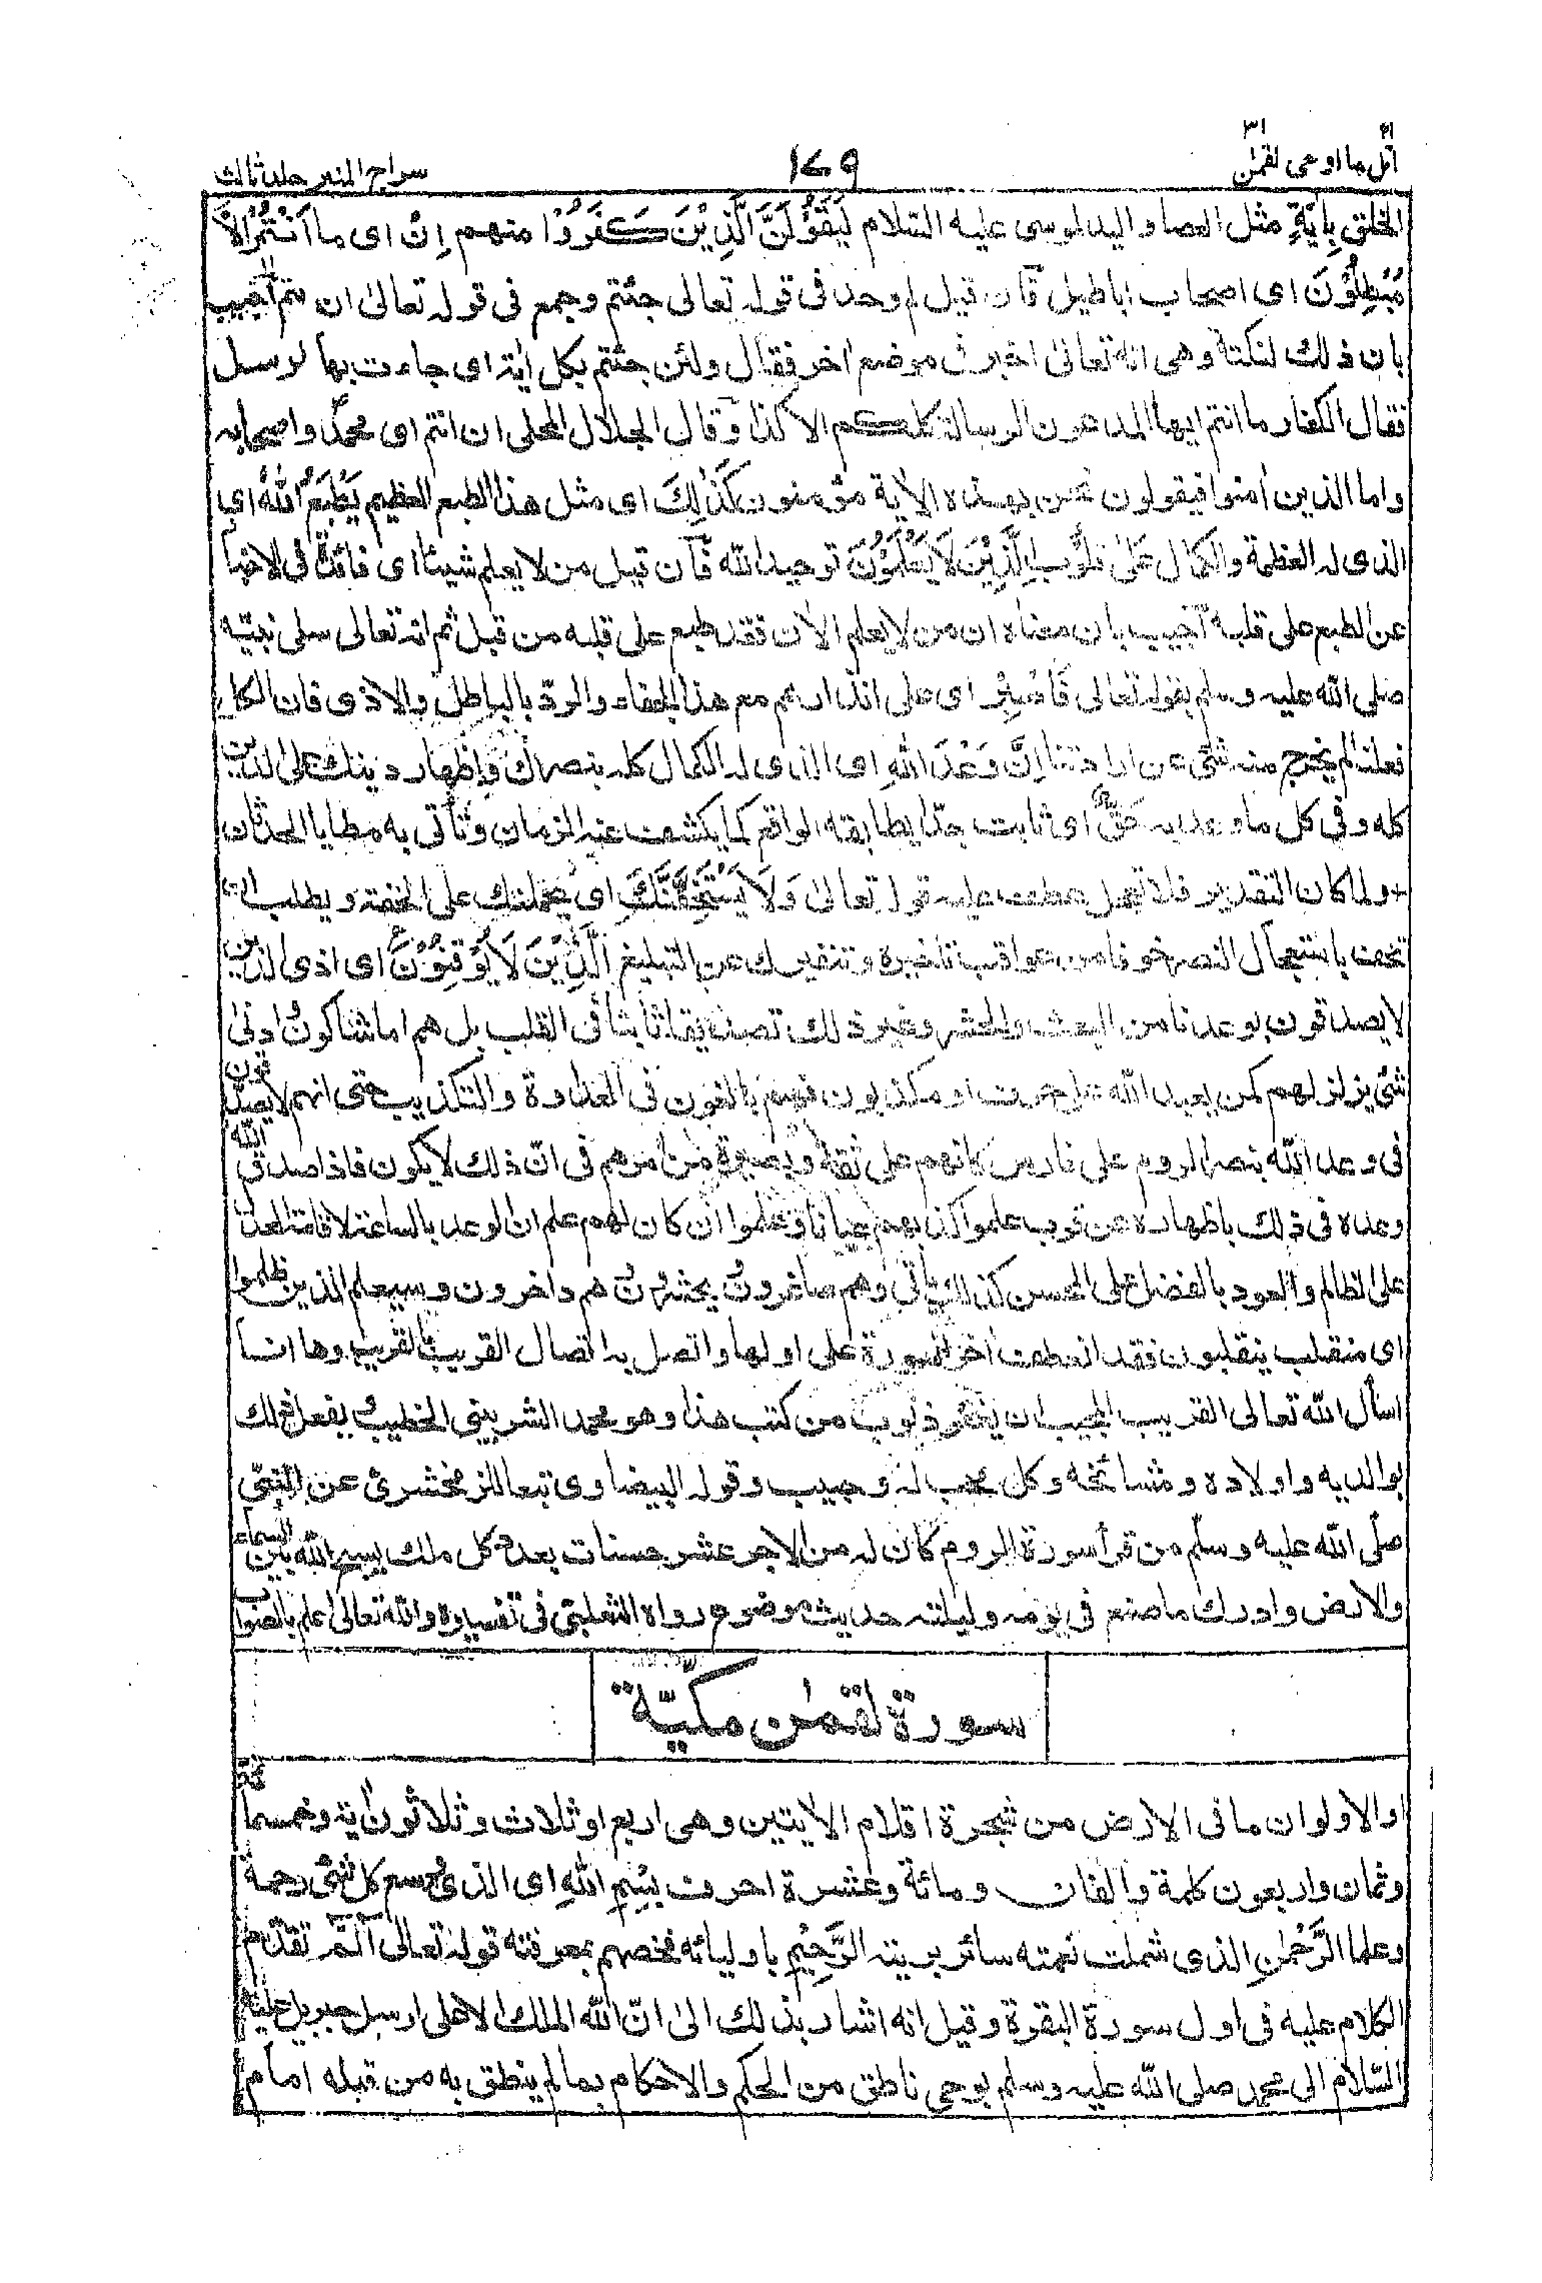 اتل ما اوحی ٢١ لقمٰن ٣١
١٧٩
سراج المنیر جلد ثالث
الخلق بِاٰيَةٍ مثل العصا واليد لموسى عليه السّلام لَيَقُوْلَنَّ الَّذِيْنَ كَفَرُوْا منهم اِنْ اى ما اَنْتُمْ اِلَّا
مُبْطِلُوْنَ اى اصحاب اباطيل فآن قيل لم وحد فى قوله تعالى جئتم وجمع فى قوله تعالىٰ ان انتم اجيب
بان ذلك لنكتة وهى انه تعالىٰ اخبر فى موضع اٰخر فقال ولئن جئتم بكل اٰية اى جاءت بها الرسل
فقال الكفار ما انتم ايها المدعون الرسالة كلكم الا كذا وقال الجلال المحلى ان انتم اى محمدٌ واصحابه
واما الذين اٰمنوا فيقولون نحن بهذه الاٰية مؤمنون كَذٰلِكَ اى مثل هذا الطبع العظيم يَطْبَعُ اللّٰهُ اى
الذى له العظمة والكمال عَلىٰ قُلُوْبِ الَّذِيْنَ لَا يَعْلَمُوْنَ توحيد الله فآن قيل من لا يعلم شيئا اى فائدة فى الاخبار
عن الطبع على قلبه اجيب بان معناه ان من لا يعلم الاٰن فقد طبع على قلبه من قبل ثم انه تعالى سلى نبيّه
صلى الله عليه وسلم بقوله تعالى فَاصْبِرْ اى على انذارهم مع هذا الجفاء والرد بالباطل والاذى فان الكل
فعلنا لم يخرج منه شئ عن ارادتنا اِنَّ وَعْدَ اللّٰهِ اى الذى له الكمال كله بنصرك واظهار دينك على الدين
كله وفى كل ما وعد به حَقٌّ اى ثابت جدّا يطابقه الواقع كما يكشف عنه الزمان وتأتى به مطايا الحدثان
ولما كان التقدير فلا تعجل عطف عليه قوله تعالىٰ وَلَا يَسْتَخِفَّنَّكَ اى يحملنك على الخفة ويطلب ان
تخف باستعجال النصر خوفا من عواقب تاخيره وتنفيرك عن التبليغ الَّذِيْنَ لَا يُوْقِنُوْنَ اى اذى الذين
لا يصدقون بوعدنا من البعث والحشر وغير ذلك تصديقا ثابتا فى القلب بل هم اما شاكون ادنىٰ
شئ يزلزلهم كمن يعبد الله على حرف او مكذبون فهم بالغون فى العداوة والتكذيب حتى انهم لا يصدّقون
فى وعد الله بنصر الروم على فارس كانهم على ثقة وبصيرة من امرهم فى انّ ذلك لا يكون فاذا صدق الله
وعده فى ذلك باظهاره عن قريب علموا كذبهم عيانا وعلموا ان كان لهم علم ان الوعد بالساعة لاقامة العدل
على الظالم والعود بالفضل على المحسن كذلك يأتى وهم صاغرون يحشرون هم داخرون وسيعلم الذين ظلموا
اى منقلب ينقلبون فقد انعطف اٰخر السورة على اولها واتصل به اتصال القريب بالقريب وها انا
اسأل الله تعالى القريب المجيب ان يغفر ذنوب من كتب هذا وهو محمد الشربينى الخطيب ويفعل ذلك
بوالديه واولاده ومشائخه وكل محب له وحبيب وقوله البيضاوى تبعا للزمخشرى عن النّبىّ
صلّى الله عليه وسلّم من قرأ سورة الروم كان له من الاجر عشر حسنات بعدد كل ملك يسبح الله بين السماء
والارض وادرك ما صنع فى يومه وليلته حديث موضوع رواه الثعلبى فى تفسيره والله تعالىٰ اعلم بالصواب
سورة لقمٰن مكيّة
او الا ولو ان ما فى الارض من شجرة اقلام الاٰيتين وهى اربع او ثلاث وثلاثون اٰية وخمسمائة
وثمان واربعون كلمة والفان ومائة وعشرة احرف بِسْمِ اللّٰهِ اى الذى وسع كل شئ رحمة
وعلما الرَّحْمٰنِ الذى شملت نعمته سائر بريته الرَّحِيْمِ باوليائه فخصهم بمعرفته قوله تعالىٰ الٓمّٓ تقدّم
الكلام عليه فى اول سورة البقرة وقيل انه اشار بذلك الىٰ انّ الله الملك الاعلى ارسل جبريل عليه
السّلام الى محمد صلى الله عليه وسلم بوحى ناطق من الحكم والاحكام بما لم ينطق به من قبله امام